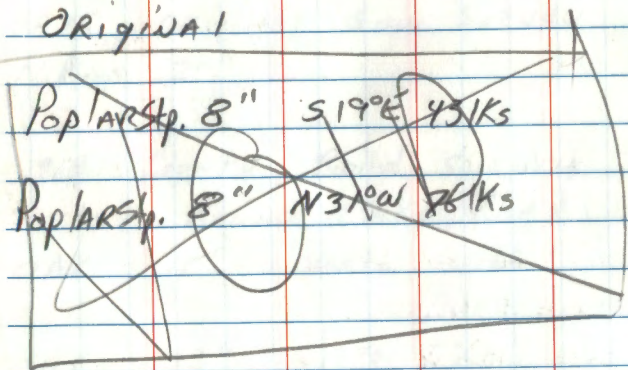 ORIGINAL
PoplARStp. 8" S 19° E 45 lKs
PoplARStp. 8" N 31° W 76 lKs